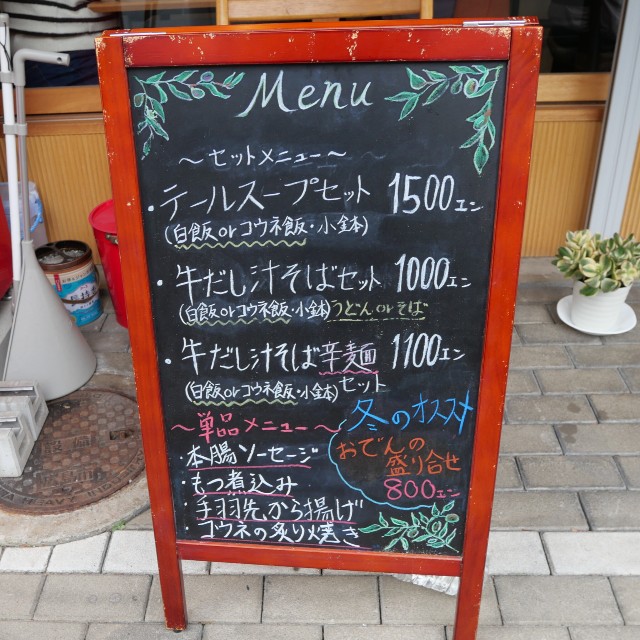 Menu
～セットメニュー～
・テールスープセット 1500エン
(白飯orコウネ飯・小鉢)
・牛だし汁そばセット 1000エン
(白飯orコウネ飯・小鉢)うどんorそば
・牛だし汁そば辛麺 1100エン
(白飯orコウネ飯・小鉢)セット
～単品メニュー～
・本腸ソーセージ
・もつ煮込み
・手羽先から揚げ
・コウネの炙り焼き
冬のオススメ
おでんの
盛り合せ
800エン